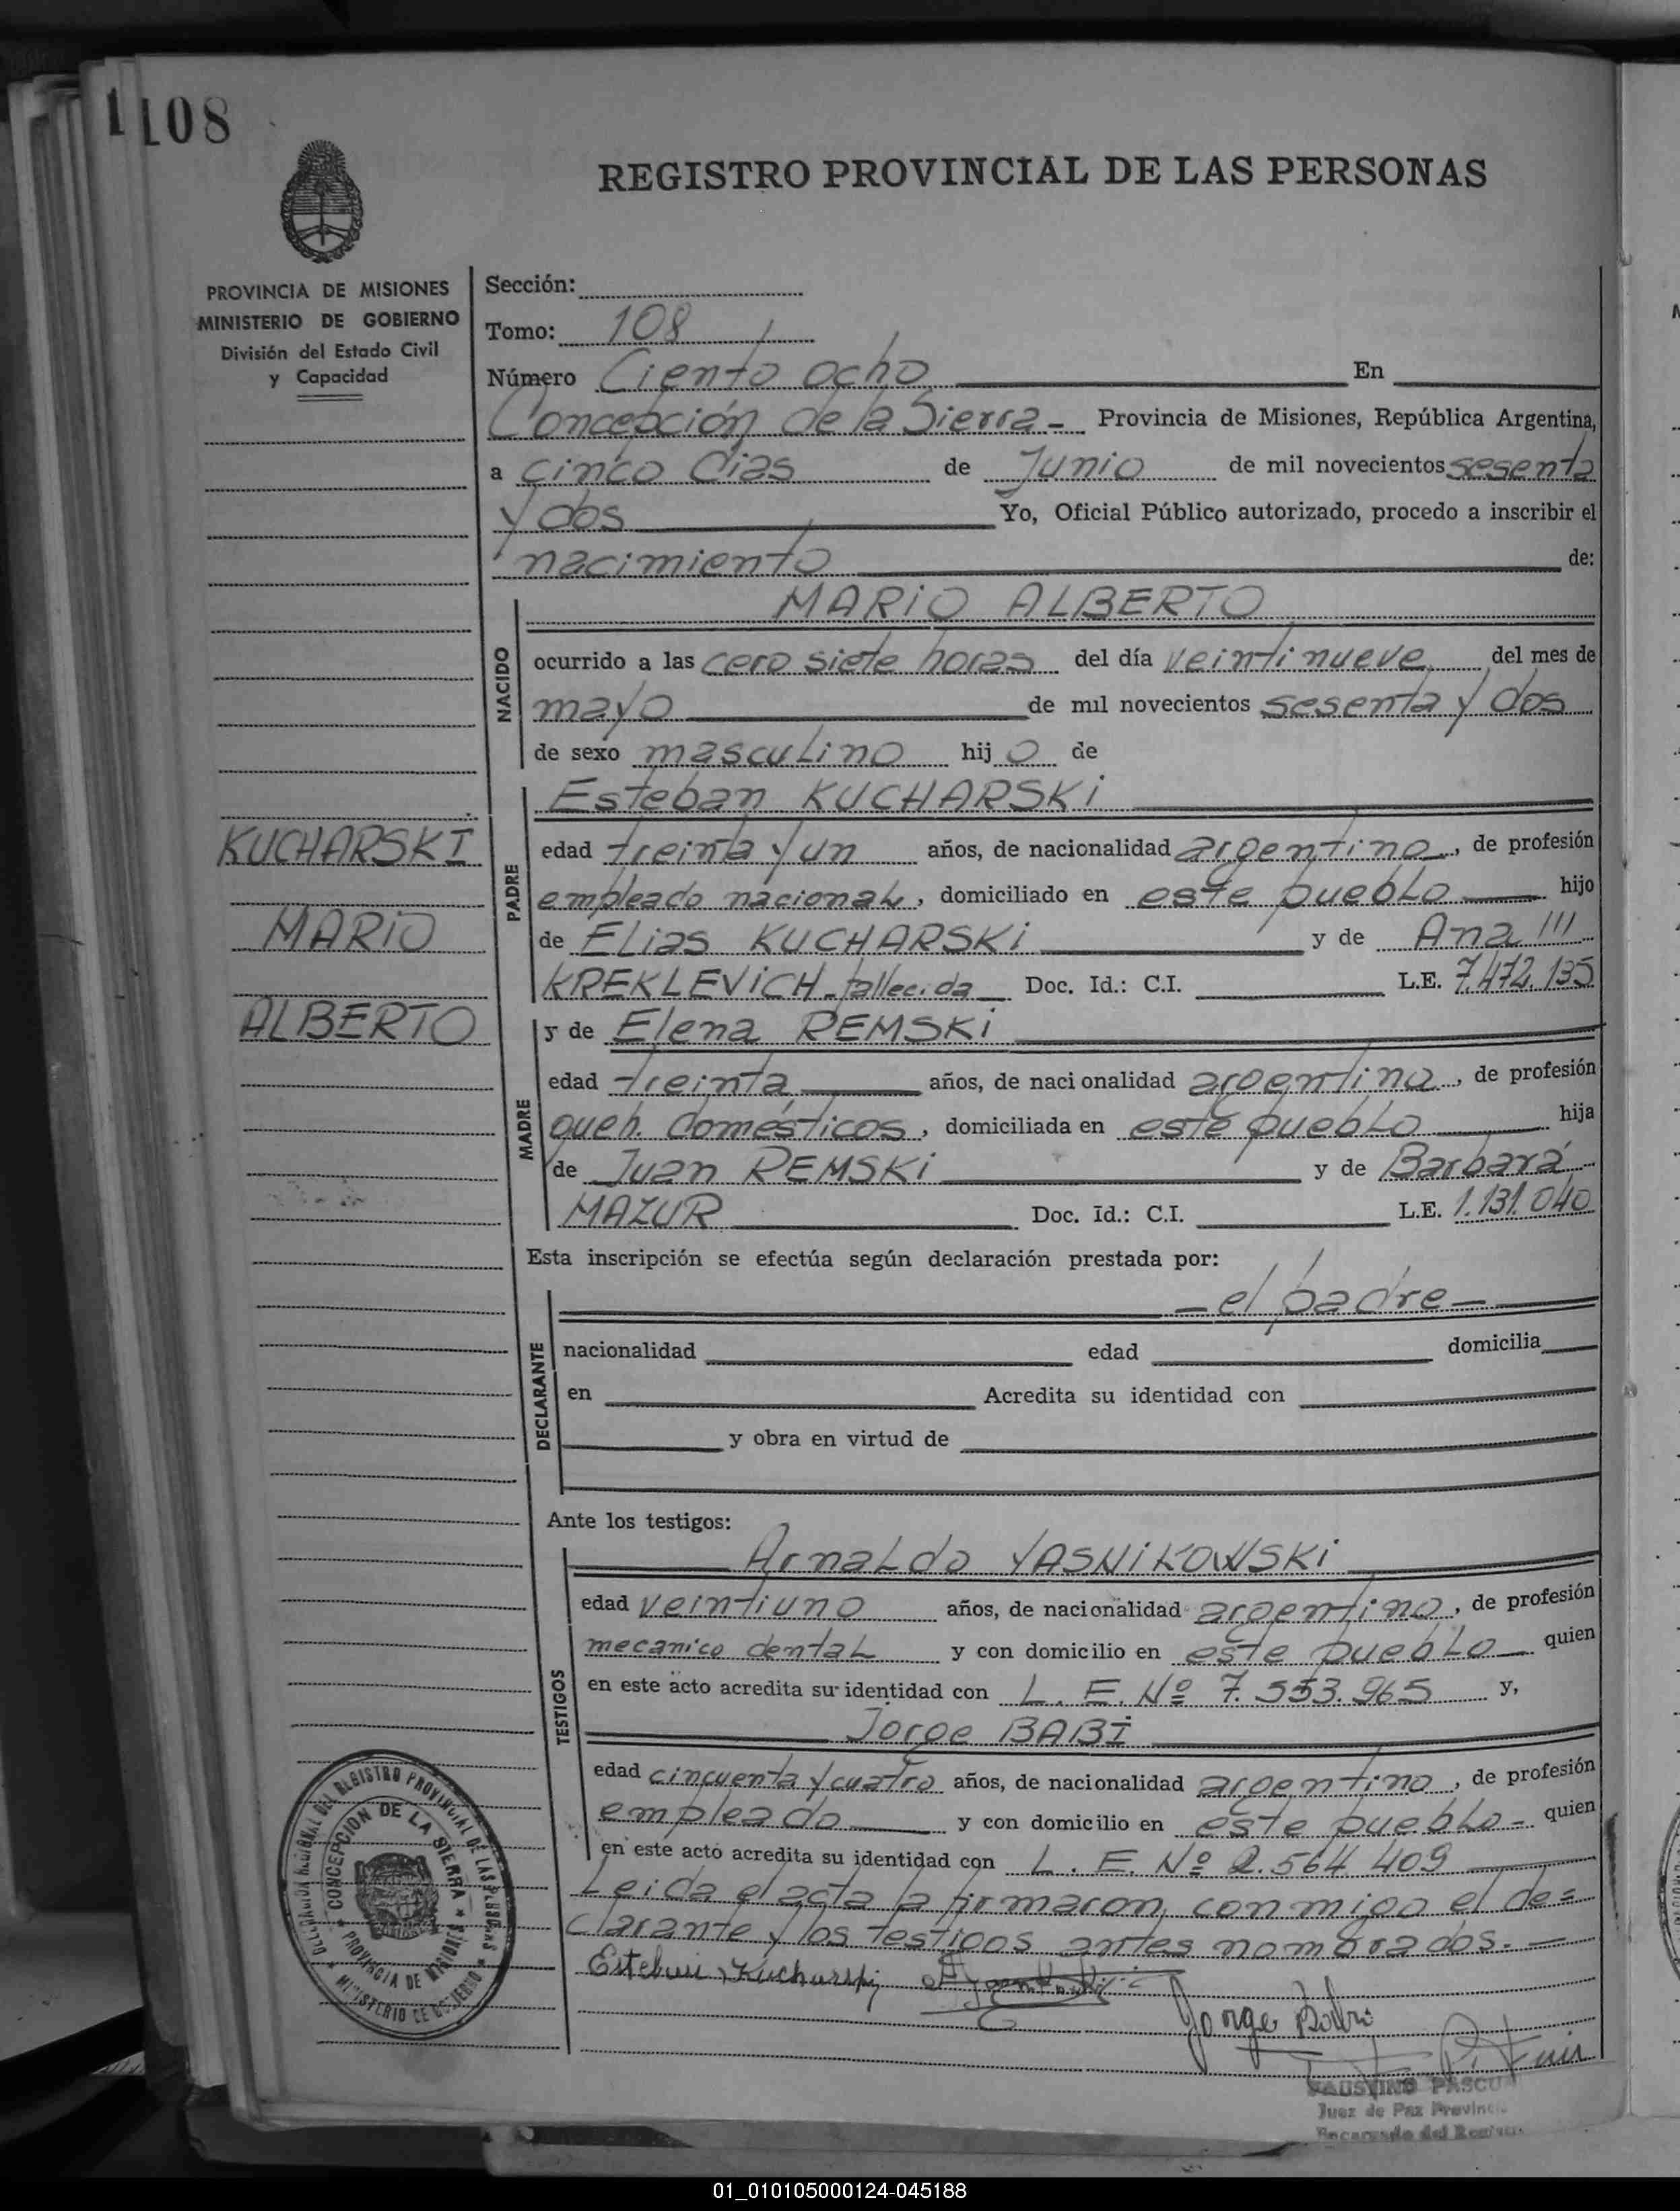 1108
REGISTRO PROVINCIAL DE LAS PERSONAS
PROVINCIA DE MISIONES
MINISTERIO DE GOBIERNO
División del Estado Civil
y Capacidad
Sección:
Tomo: 108
Número Ciento ocho En
Concepción de la Sierra - Provincia de Misiones, República Argentina,
a cinco dias de Junio de mil novecientos sesenta
y dos Yo, Oficial Público autorizado, procedo a inscribir el
nacimiento de:
MARIO ALBERTO
NACIDO
ocurrido a las cero siete horas del día veintinueve del mes de
mayo de mil novecientos sesenta y dos
de sexo masculino hijo de
Esteban KUCHARSKI
KUCHARSKI
MARIO
ALBERTO
PADRE
edad treinta y un años, de nacionalidad argentino, de profesión
empleado nacional, domiciliado en este pueblo hijo
de Elias KUCHARSKI y de Ana
KREKLEVICH - fallecida Doc. Id.: C.I. L.E. 7.472.135
y de Elena REMSKI
MADRE
edad treinta años, de nacionalidad argentina, de profesión
queh. domésticos, domiciliada en este pueblo hija
de Juan REMSKI y de Barbará
MAZUR Doc. Id.: C.I. L.E. 1.131.040
Esta inscripción se efectúa según declaración prestada por:
- el padre -
DECLARANTE
nacionalidad edad domicilia
en Acredita su identidad con
y obra en virtud de
Ante los testigos:
Arnaldo YASNIKOWSKI
TESTIGOS
edad veintiuno años, de nacionalidad argentino, de profesión
mecanico dental y con domicilio en este pueblo quien
en este acto acredita su identidad con L. E. Nº 7.553.965 y,
Jorge BABI
edad cincuenta y cuatro años, de nacionalidad argentino, de profesión
empleado y con domicilio en este pueblo - quien
en este acto acredita su identidad con L. E. Nº 2.564.409
Leida el acta la firmaron conmigo el de=
clarante y los testigos antes nombrados. -
Esteban Kucharski
Jorge Babi
DELEGACION REGIONAL DEL REGISTRO PROVINCIAL DE LAS PERSONAS
MINISTERIO DE GOBIERNO
CONCEPCION DE LA SIERRA
PROVINCIA DE MISIONES
FAUSTINO PASCU
Juez de Paz Provinci
Encargado del Registro
01_010105000124-045188